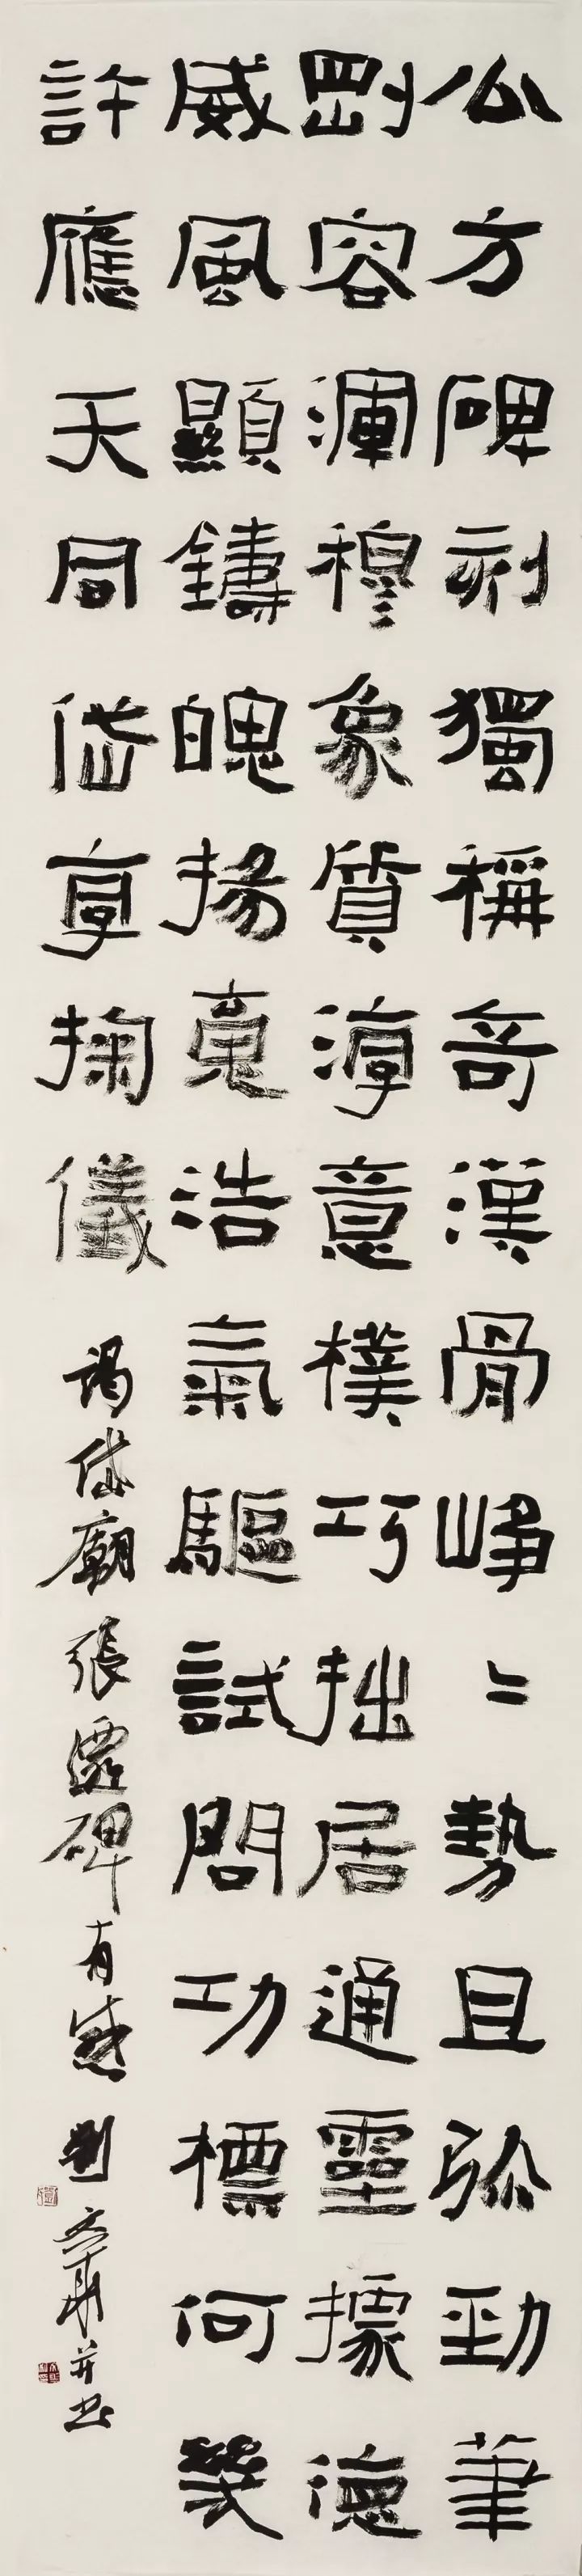 公方碑刻獨稱奇漢骨峥〻勢且弥勁筆
剛容渾穆象質淳意樸巧拙居通靈據德
威風顯鑄魄揚魂浩氣驅試問功標何幾
許應天同岱享掬儀 謁岱廟張遷碑有感 劉文華并书